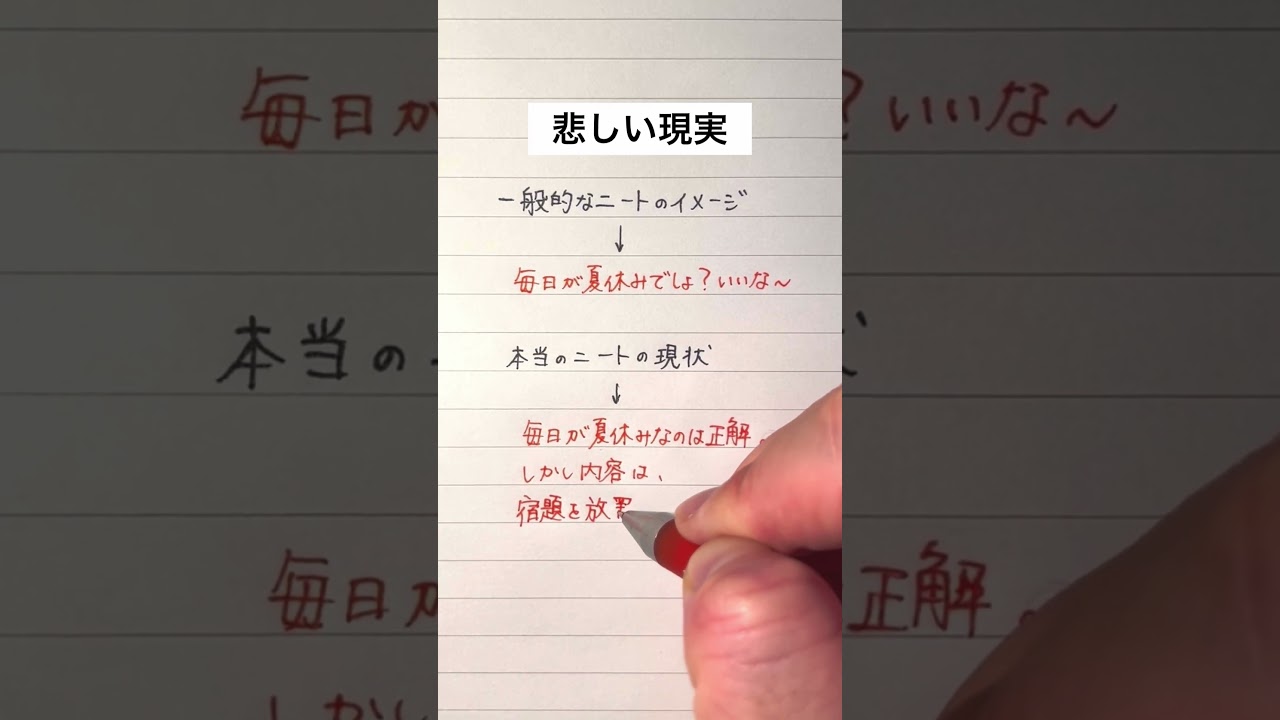 悲しい現実
一般的なニートのイメージ
↓
毎日が夏休みでしょ?いいな〜
本当のニートの現状
↓
毎日が夏休みなのは正解。
しかし内容は、
宿題を放置